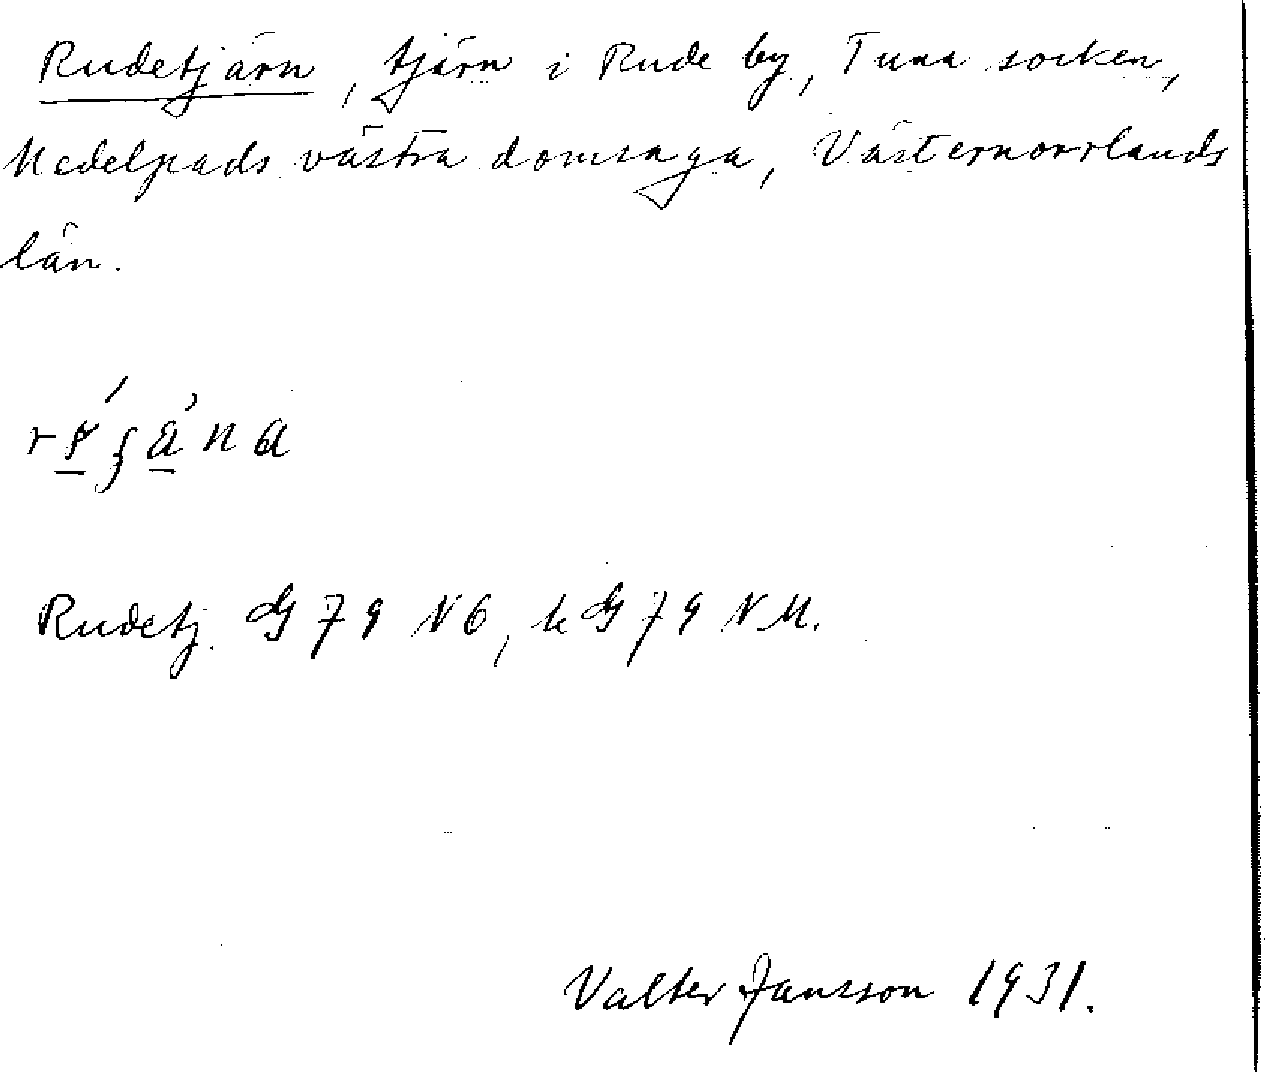 Rudetjärn, tjärn i Rude by, Tuna socken,
Medelpads västra domsaga, Västernorrlands
län.
Rudetj. G 79 NO, k G 79 NM.
Valter Jansson 1931.